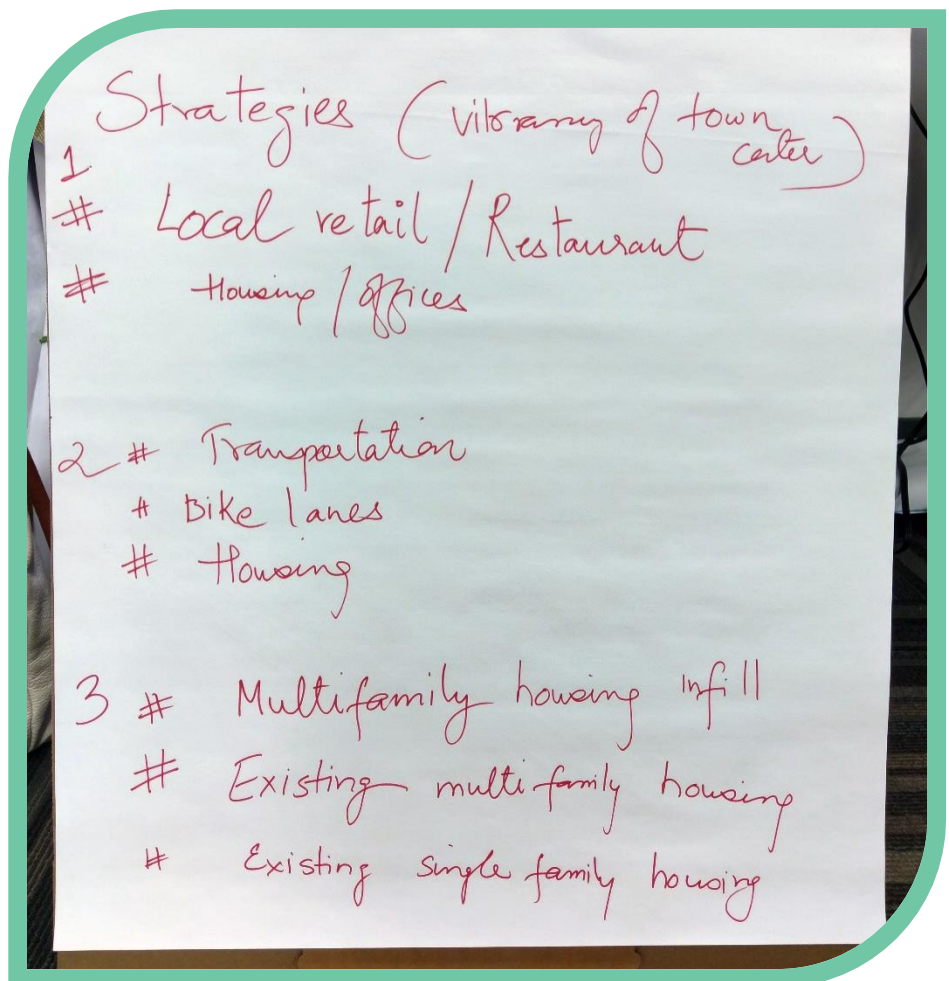 Strategies (vibrancy of town
center)
1
# Local retail / Restaurant
# Housing / offices
2 # Tranportation
# Bike lanes
# Housing
3 # Multifamily housing infill
# Existing multi family housing
# Existing single family housing